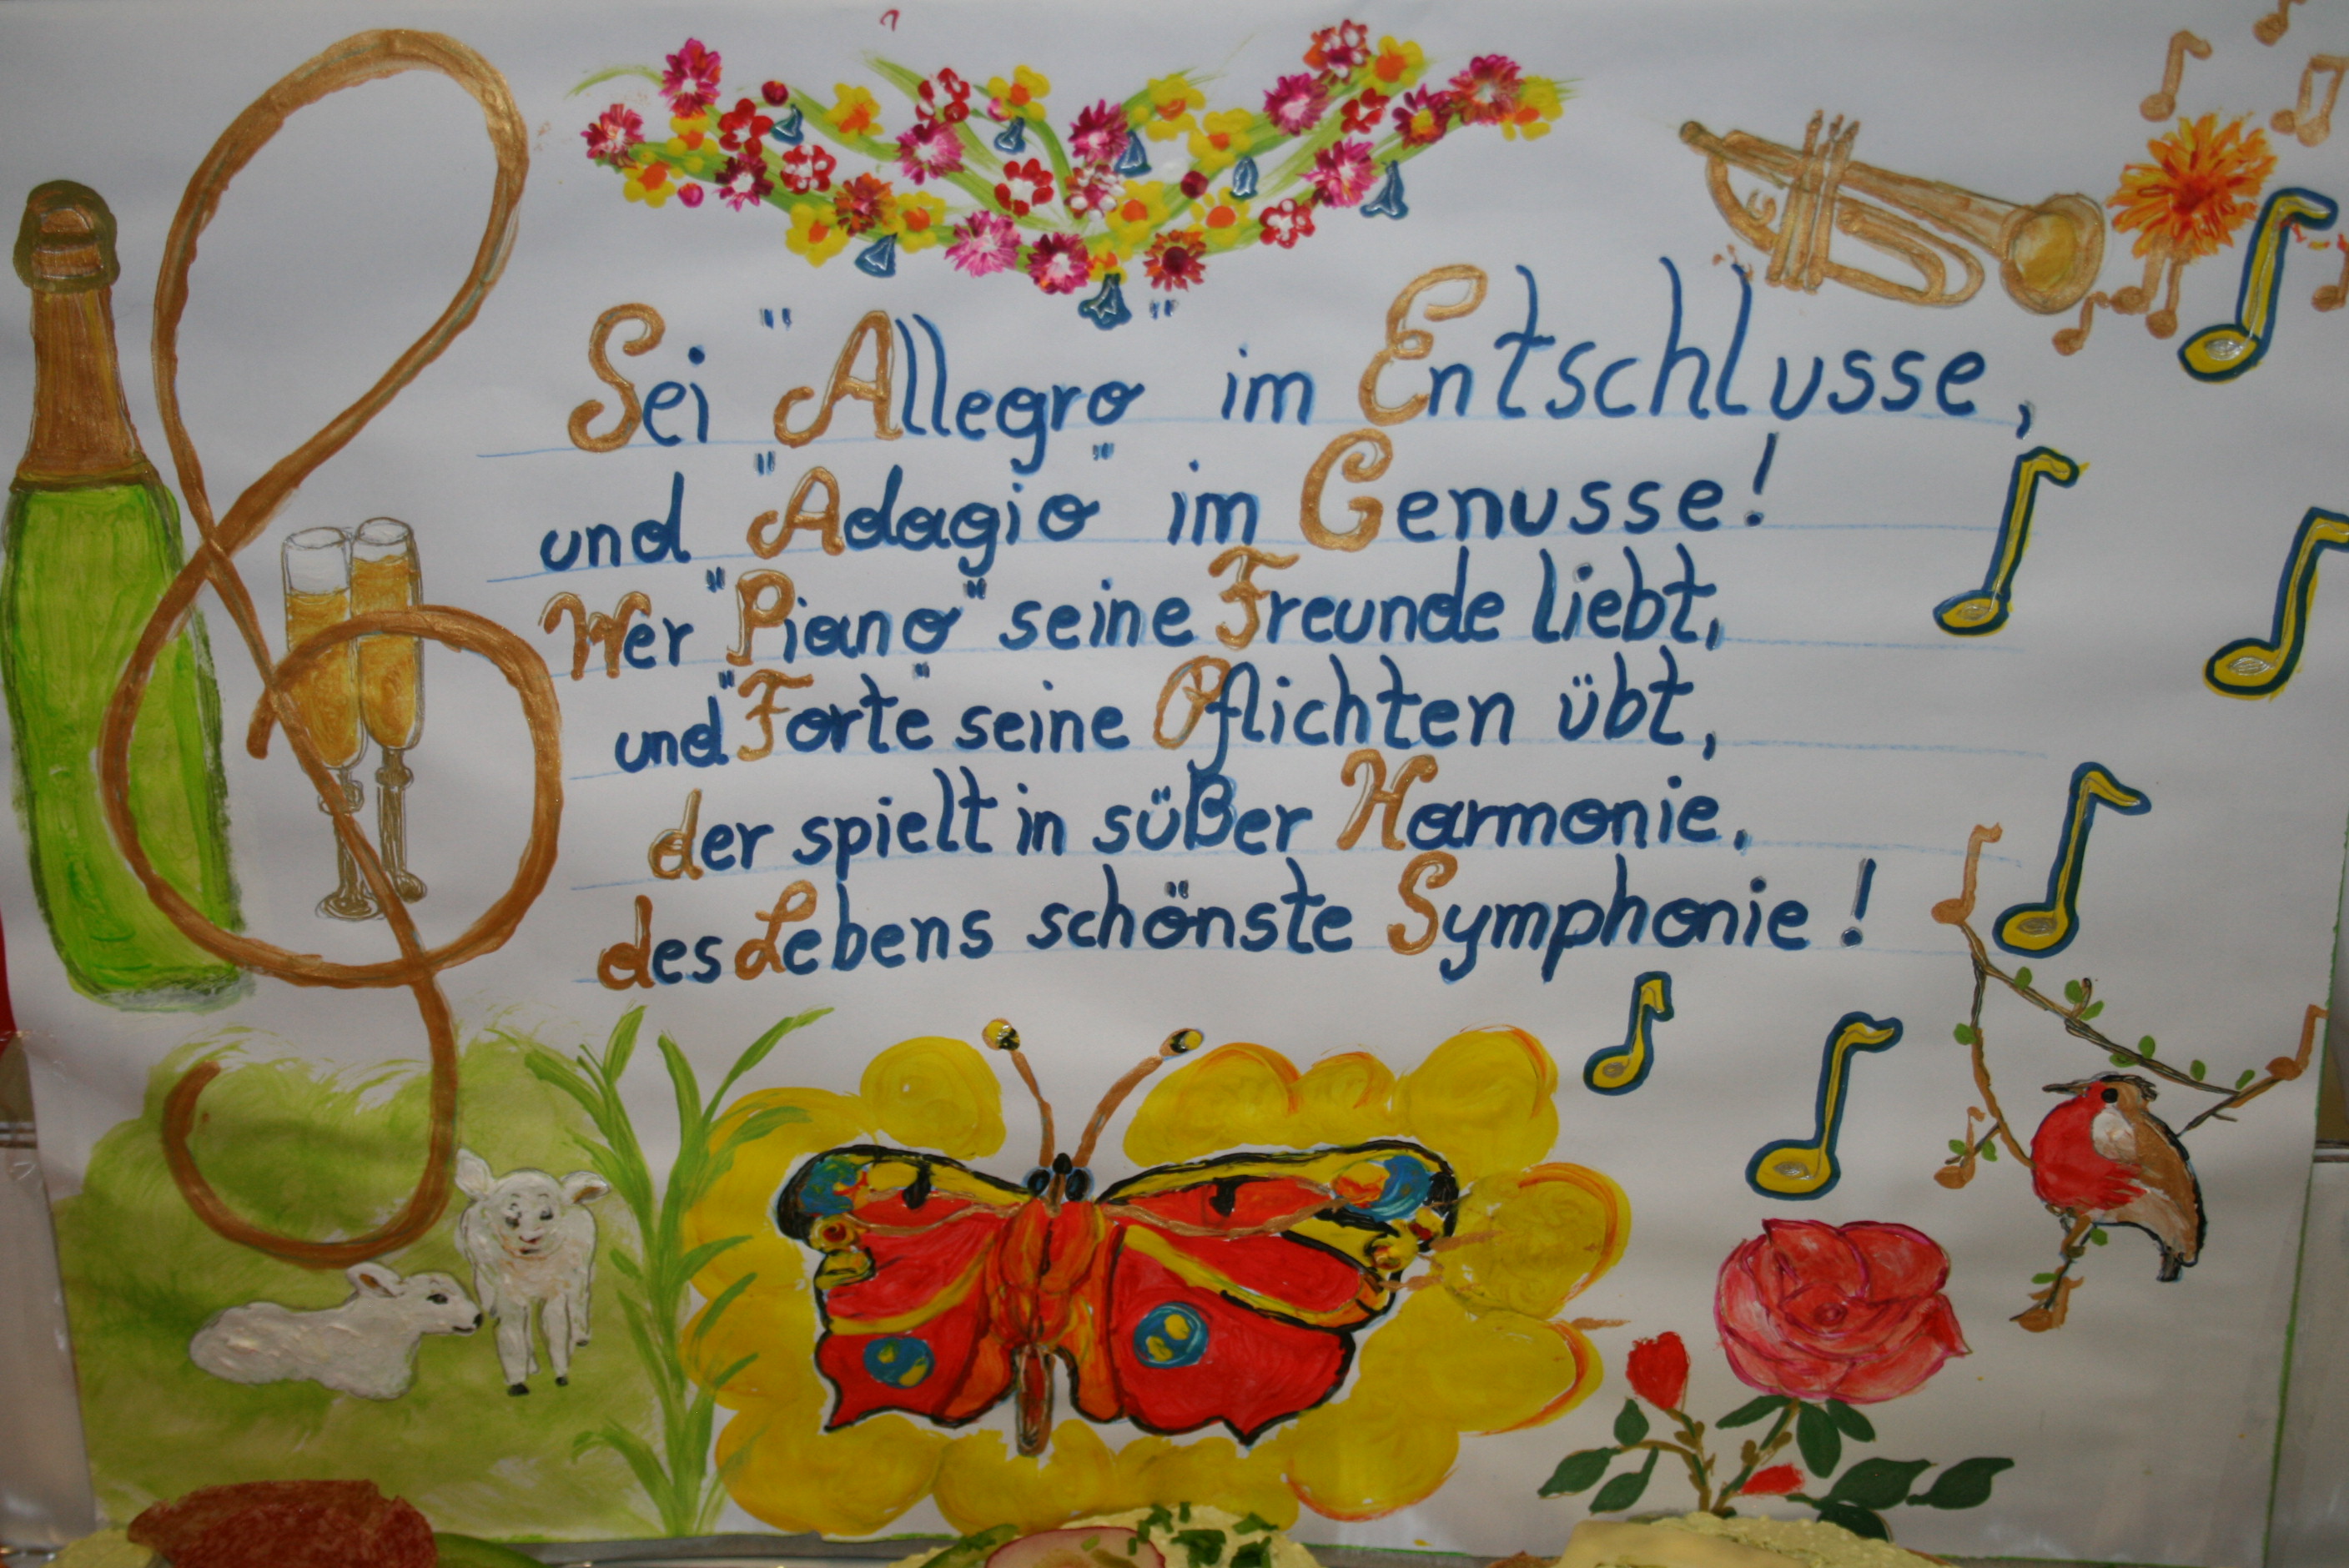 Sei "Allegro" im Entschlusse,
und "Adagio" im Genusse!
Wer "Piano" seine Freunde liebt,
und "Forte" seine Pflichten übt,
der spielt in süßer Harmonie.
des Lebens schönste Symphonie!